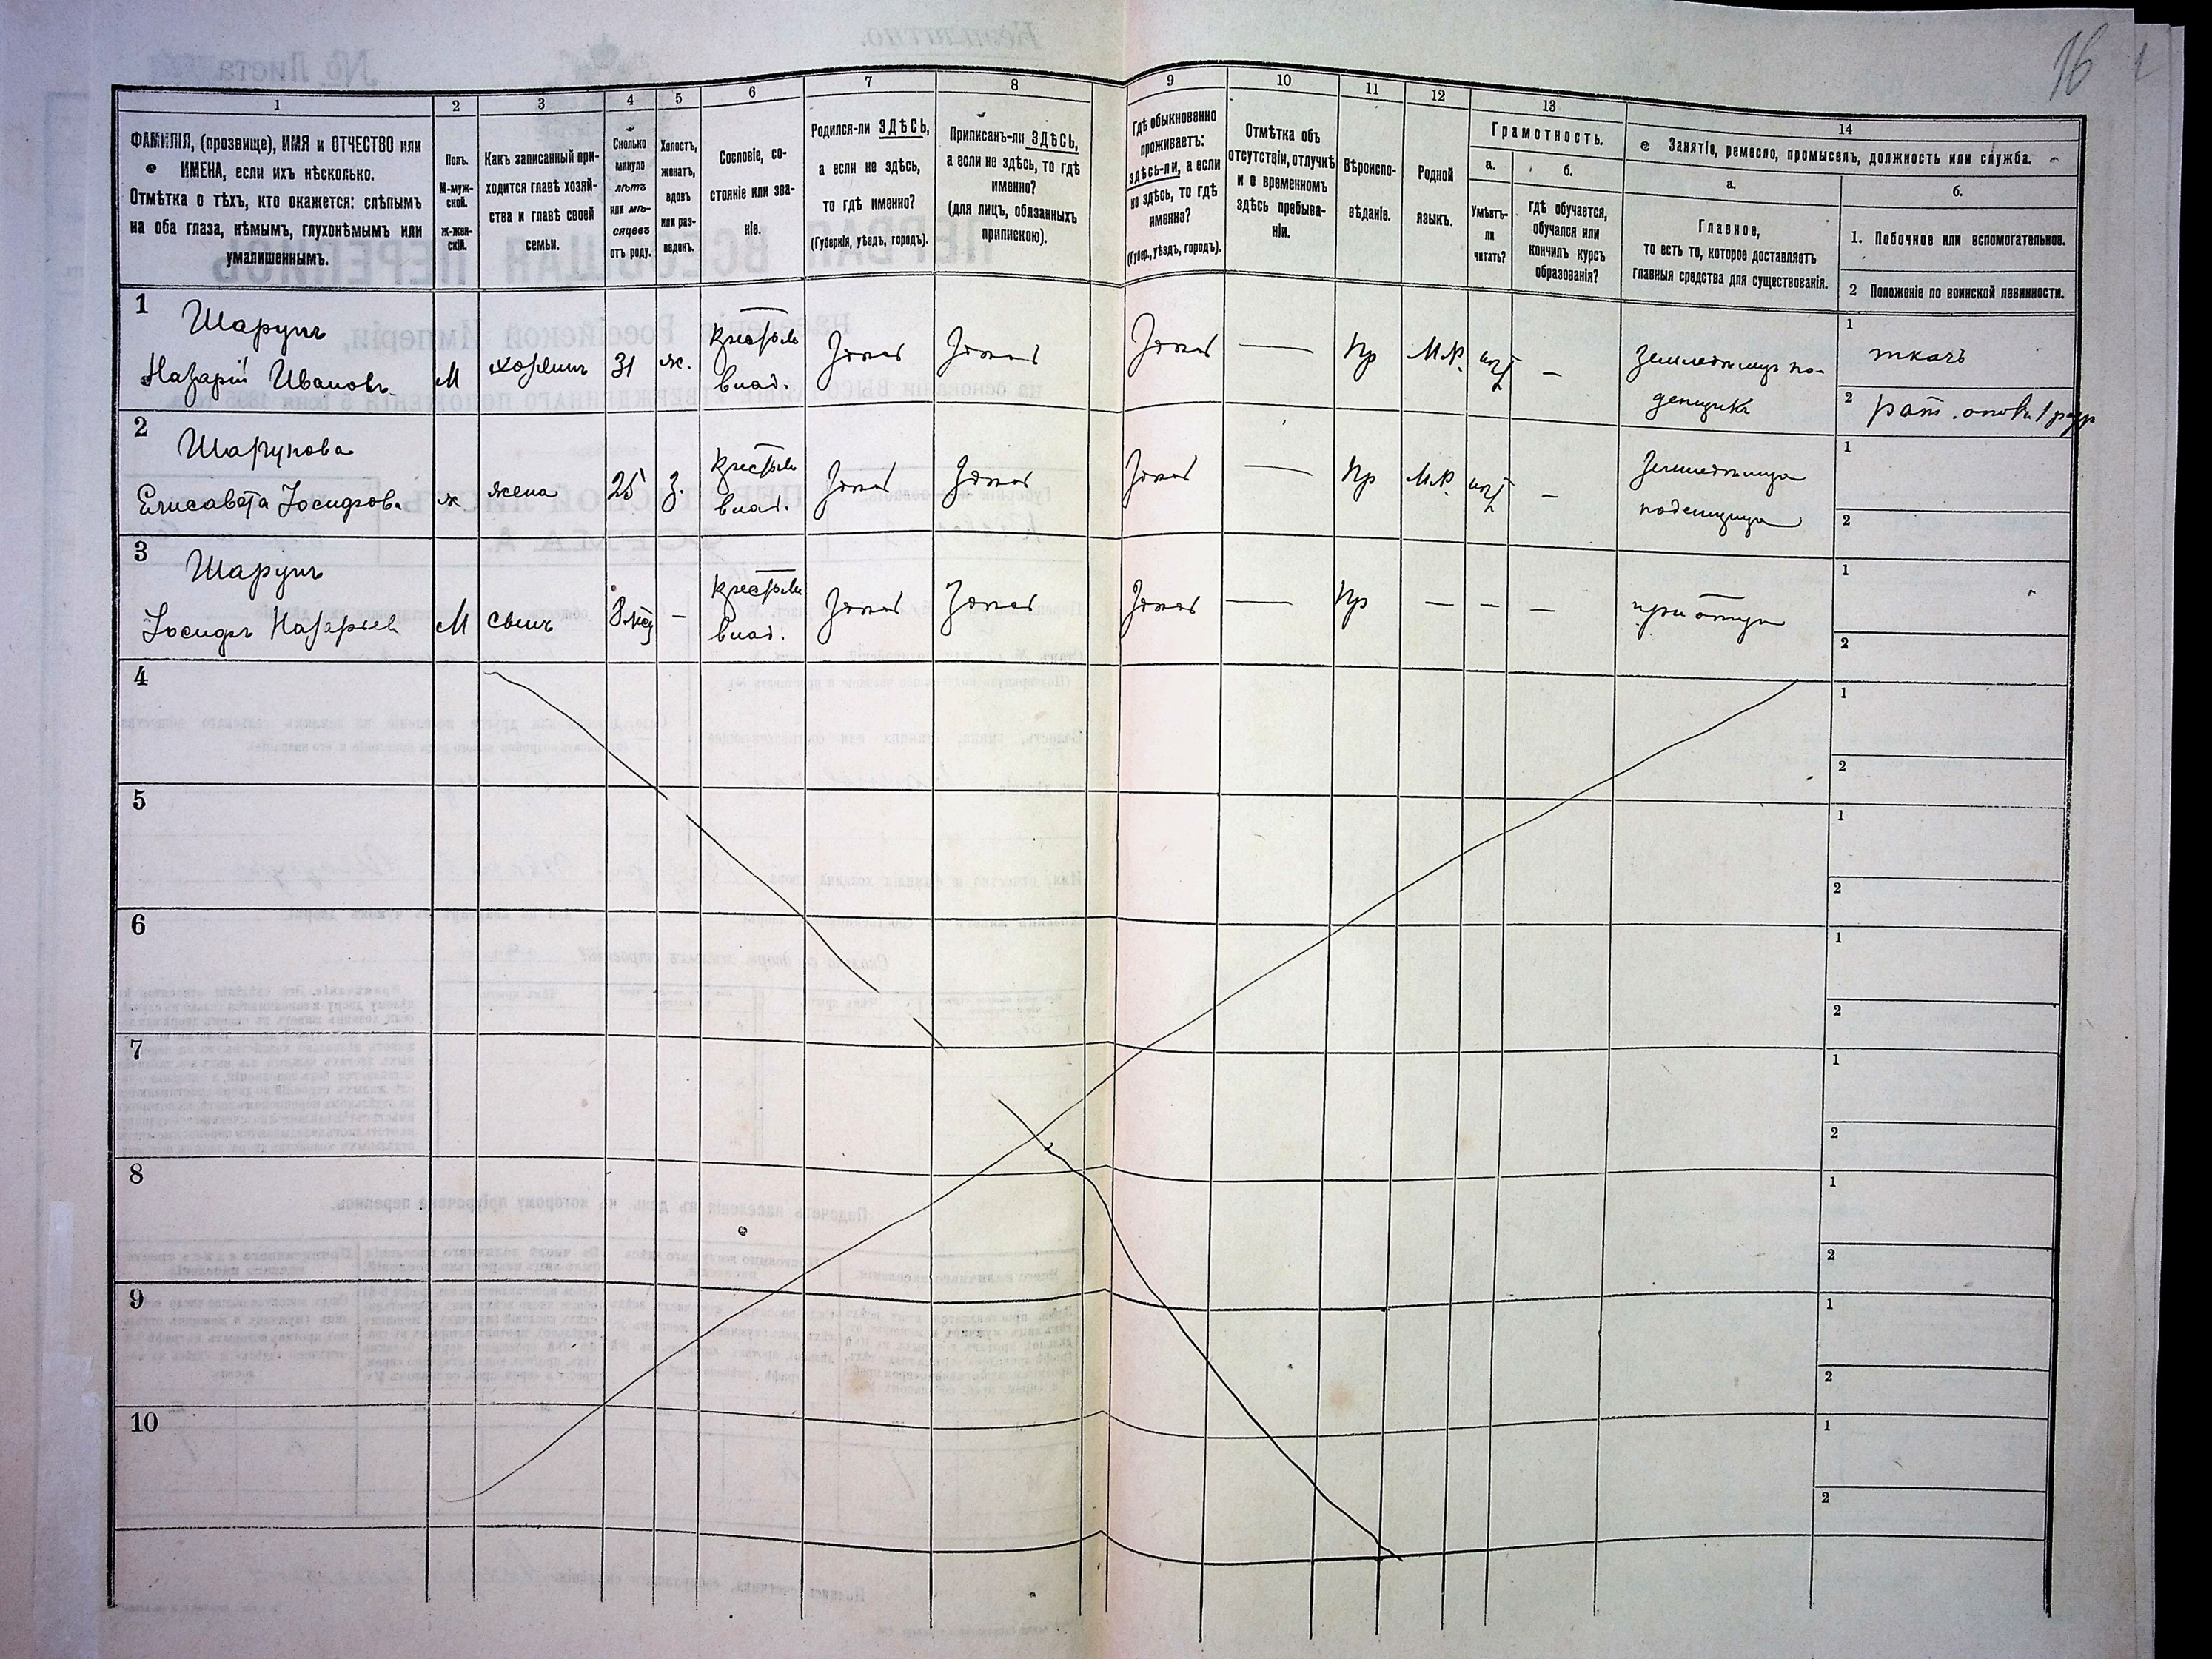 16
1
2
3
4
5
6
7
8
9
10
11
12
13
14
ФАМИЛІЯ, (прозвище), ИМЯ и ОТЧЕСТВО или
ИМЕНА, если ихъ нѣсколько.
Отмѣтка о тѣхъ, кто окажется: слѣпымъ
на оба глаза, нѣмымъ, глухонѣмымъ или
умалишеннымъ.
Полъ.
М-муж-
ской.
Ж-жен-
скій.
Какъ записанный при-
ходится главѣ хозяй-
ства и главѣ своей
семьи.
Сколько
минуло
лѣтъ
или мѣ-
сяцевъ
отъ роду.
Холостъ,
женатъ,
вдовъ
или раз-
веденъ.
Сословіе, со-
стояніе или зва-
ніе.
Родился-ли ЗДѢСЬ,
а если не здѣсь,
то гдѣ именно?
(Губернія, уѣздъ, городъ).
Приписанъ-ли ЗДѢСЬ,
а если не здѣсь, то гдѣ
именно?
(для лицъ, обязанныхъ
припискою).
Гдѣ обыкновенно
проживаетъ:
здѣсь-ли, а если
не здѣсь, то гдѣ
именно?
(Губер., уѣздъ, городъ).
Отмѣтка объ
отсутствіи, отлучкѣ
и о временномъ
здѣсь пребыва-
ніи.
Вѣроиспо-
вѣданіе.
Родной
языкъ.
Грамотность.
а.
Умѣетъ-
ли
читать?
б.
Гдѣ обучается,
обучался или
кончилъ курсъ
образованія?
Занятіе, ремесло, промыселъ, должность или служба.
а.
Главное,
то есть то, которое доставляетъ
главныя средства для существованія.
б.
1. Побочное или вспомогательное.
2 Положеніе по воинской повинности.
1
Шарупъ
Назарій Ивановъ
М
хозяинъ
31
ж.
крестьян
влад.
Здѣсь
Здѣсь
Здѣсь
—
Пр
М.Р.
нѣт
—
земледѣлецъ по-
денщикъ
1
ткачъ
2
рат. опол. 1 разр
2
Шарупова
Елисавета Іосифова
ж
жена
25
з.
крестьян
влад.
Здѣсь
Здѣсь
Здѣсь
—
Пр
М.Р.
нѣт
—
Земледѣлица
поденщица
1
2
3
Шарупъ
Іосифъ Назарьев
М
сынъ
8 мѣс
—
крестьян
влад.
Здѣсь
Здѣсь
Здѣсь
—
Пр
—
—
—
при отцѣ
1
2
4
1
2
5
1
2
6
1
2
7
1
2
8
1
2
9
1
2
10
1
2